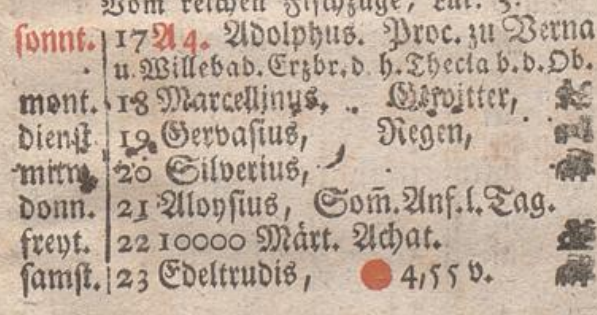 Vom reichen Fischzuge, Luc. 5.
sonnt. 17 A 4. Adolphus. Proc. zu Verna
u. Willebad. Erzbr. d. h. Thecla b. d. Ob.
mont. 18 Marcellinus, Gewitter,
dienst. 19 Gervasius, Regen,
mitw. 20 Silverius,
donn. 21 Aloysius, Som̃. Anf. l. Tag.
freyt. 22 10000 Märt. Achat.
samst. 23 Edeltrudis, 4,55 v.